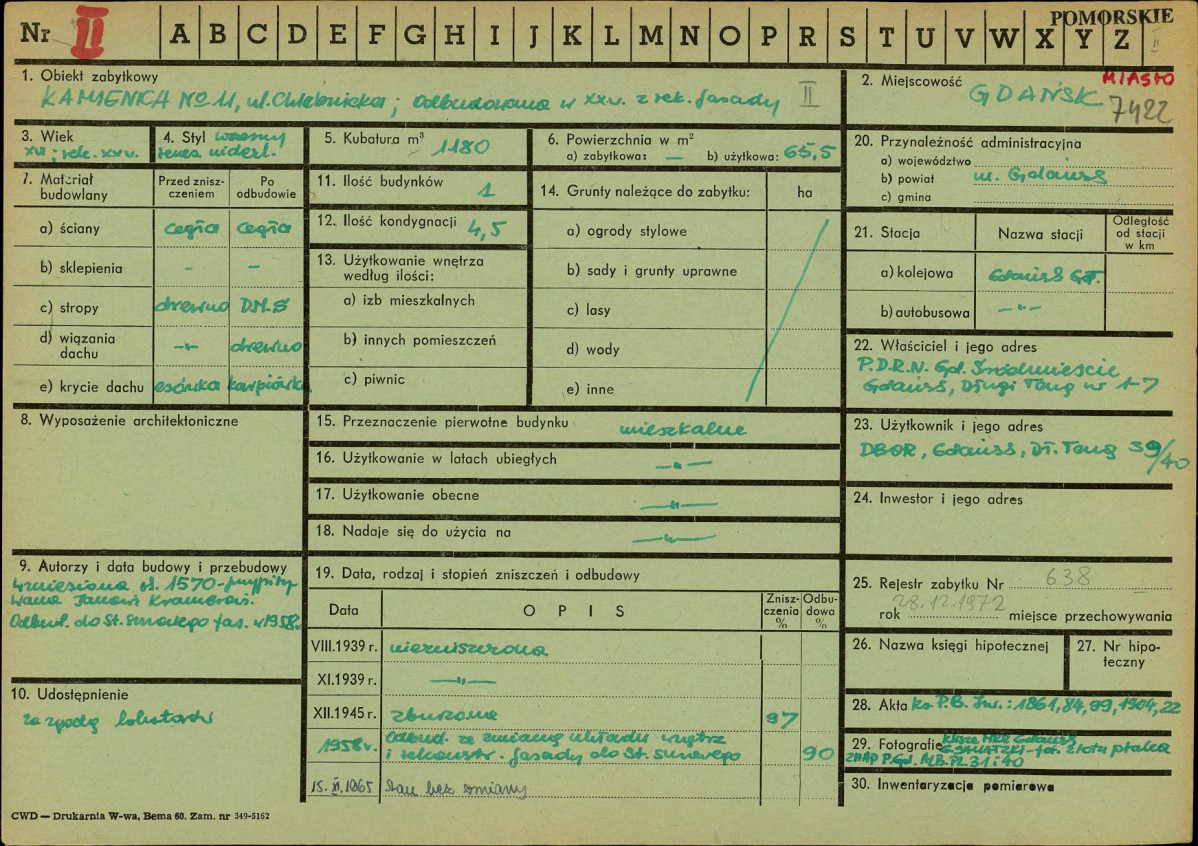 POMORSKIE
Nr II A B C D E F G H I J K L M N O P R S T U V W X Y Z II
1. Obiekt zabytkowy
KAMIENICA No 11, ul. Chlebnicka; Odbudowana w XX w. z rek. fasady II
2. Miejscowość MIASTO
GDAŃSK 7422
3. Wiek
XVI; rek. XX w.
4. Styl wczesny
renes niderl.
5. Kubatura m³ 1180
6. Powierzchnia w m²
a) zabytkowa: — b) użytkowa: 65,5
20. Przynależność administracyjna
a) województwo
b) powiat m. Gdańsk
c) gmina
7. Materiał budowlany
Przed zniszczeniem
Po odbudowie
a) ściany cegła cegła
b) sklepienia - -
c) stropy drewno D.M.S
d) wiązania dachu -"- drewno
e) krycie dachu esówka karpiówka
11. Ilość budynków 1
12. Ilość kondygnacji 4,5
13. Użytkowanie wnętrza według ilości:
a) izb mieszkalnych
b) innych pomieszczeń
c) piwnic
14. Grunty należące do zabytku: ha
a) ogrody stylowe
b) sady i grunty uprawne
c) lasy
d) wody
e) inne
21. Stacja
Nazwa stacji
Odległość od stacji w km
a) kolejowa Gdańsk Gł.
b) autobusowa -"-
22. Właściciel i jego adres
P.D.R.N. Gd. Śródmieście
Gdańsk, Długi Targ nr 1-7
8. Wyposażenie architektoniczne
15. Przeznaczenie pierwotne budynku mieszkalne
16. Użytkowanie w latach ubiegłych -"-
17. Użytkowanie obecne -"-
18. Nadaje się do użycia na -"-
23. Użytkownik i jego adres
DBOR, Gdańsk, Dł. Targ 39/40
24. Inwestor i jego adres
9. Autorzy i data budowy i przebudowy
wzniesiona ok. 1570 - przypisy-
wana Janowi Kramerowi.
Odbud. do St. surowego fas. w 1958r.
10. Udostępnienie
za zgodą lokatorów
19. Data, rodzaj i stopień zniszczeń i odbudowy
Data
OPIS
Zniszczenia %
Odbudowa %
VIII.1939 r. niezniszczona
XI.1939 r. -"-
XII.1945 r. zburzona 97
1958r. Odbud. ze zmianą układu wnętrz
i rekonstr. fasady do St. surowego 90
15. XI. 1965 Stan bez zmiany
25. Rejestr zabytku Nr 638
rok 28.12.1972 miejsce przechowywania
26. Nazwa księgi hipotecznej
27. Nr hipoteczny
28. Akta ks. P.B. Inw.: 1861, 84, 99, 1904, 22
29. Fotografie klisze WKZ Gdańsk
fot. złota ptaka
ZHAP P.Gd. ALB. PL 31 i 40
30. Inwentaryzacja pomiarowa
CWD — Drukarnia W-wa, Bema 60. Zam. nr 349-5162